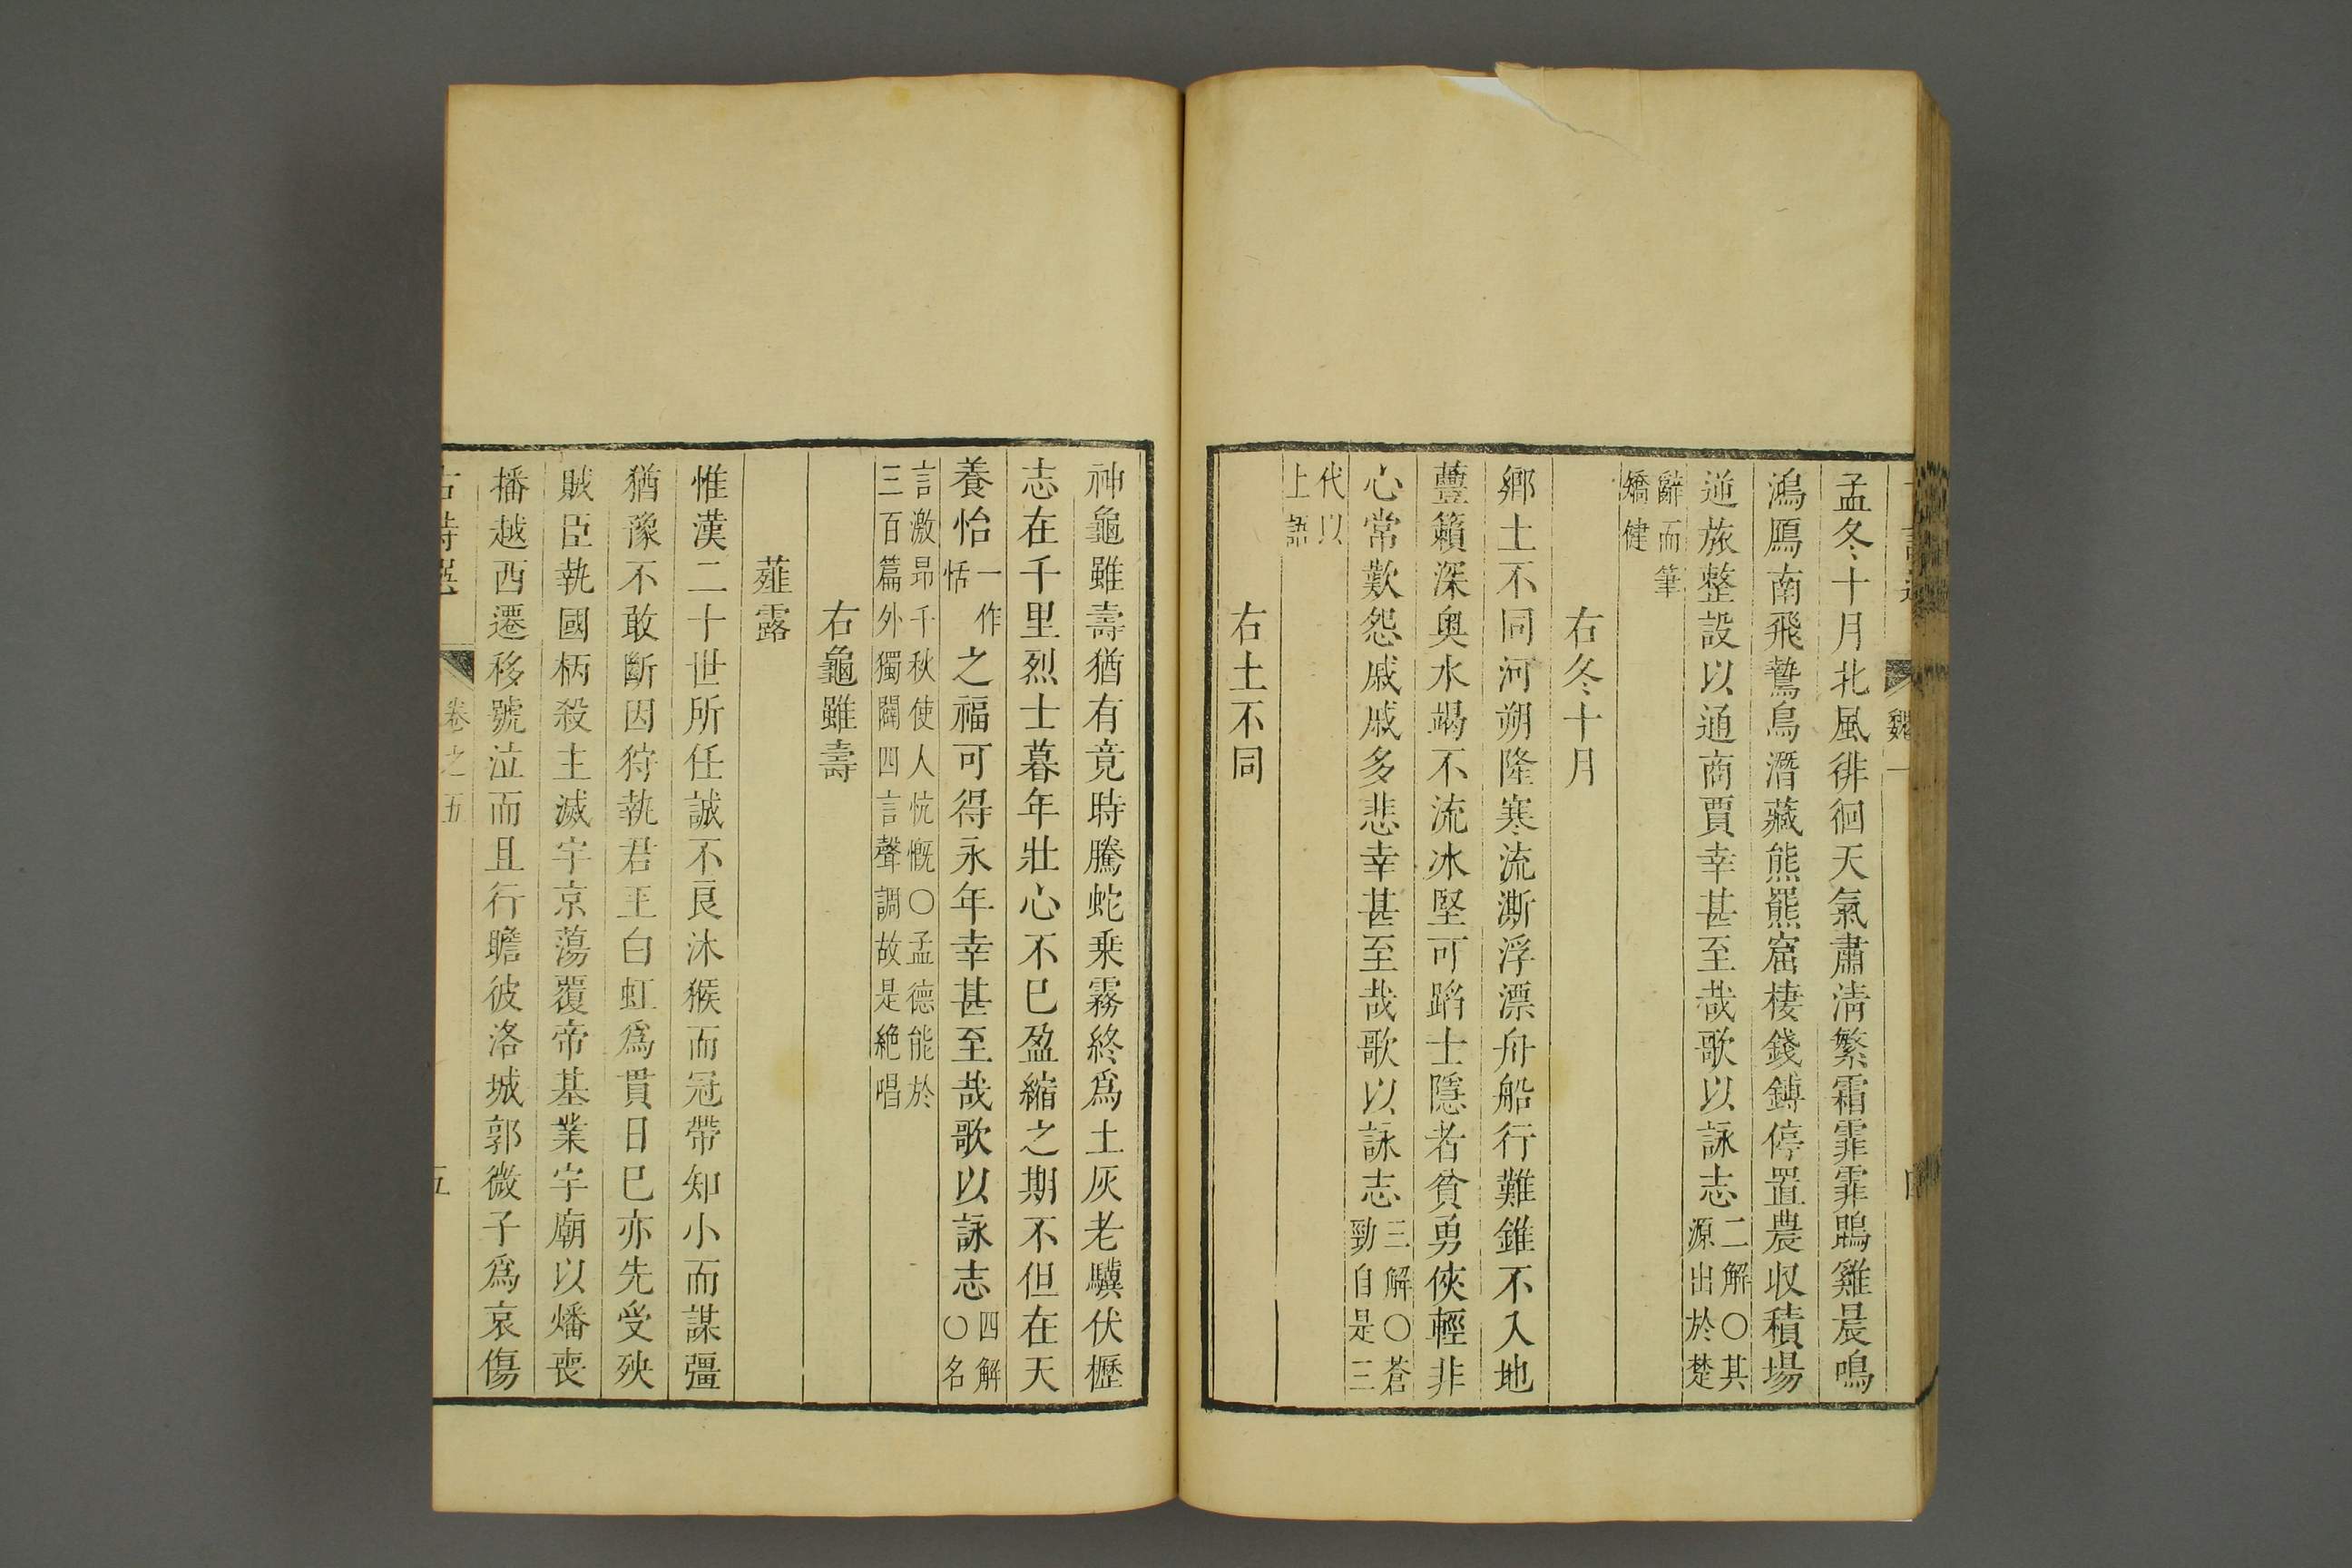 魏一
孟冬十月北風徘徊天氣肅淸繁霜霏霏鵾雞晨鳴
鴻鴈南飛鷙鳥潛藏熊羆窟棲錢鎛停置農収積場
逆旅整設以通商賈幸甚至哉歌以詠志二解〇其源出於楚
辭而筆矯健
右冬十月
鄉土不同河朔隆寒流澌浮漂舟船行難錐不入地
蘴籟深奧水竭不流冰堅可蹈士隱者貧勇俠輕非
心常歎怨戚戚多悲幸甚至哉歌以詠志三解〇蒼勁自是三
代以上語
右土不同
神龜雖壽猶有竟時騰蛇乗霧終爲土灰老驥伏櫪
志在千里烈士暮年壯心不已盈縮之期不但在天
養怡一作恬之福可得永年幸甚至哉歌以詠志四解〇名
言激昂千秋使人忼慨〇孟德能於三百篇外獨闢四言聲調故是絶唱
右龜雖壽
薤露
惟漢二十世所任誠不良沐猴而冠帶知小而謀彊
猶豫不敢斷因狩執君王白虹爲貫日巳亦先受殃
賊臣執國柄殺主滅宇京蕩覆帝基業宇廟以燔喪
播越西遷移號泣而且行瞻彼洛城郭微子爲哀傷
古詩選 卷之五 五